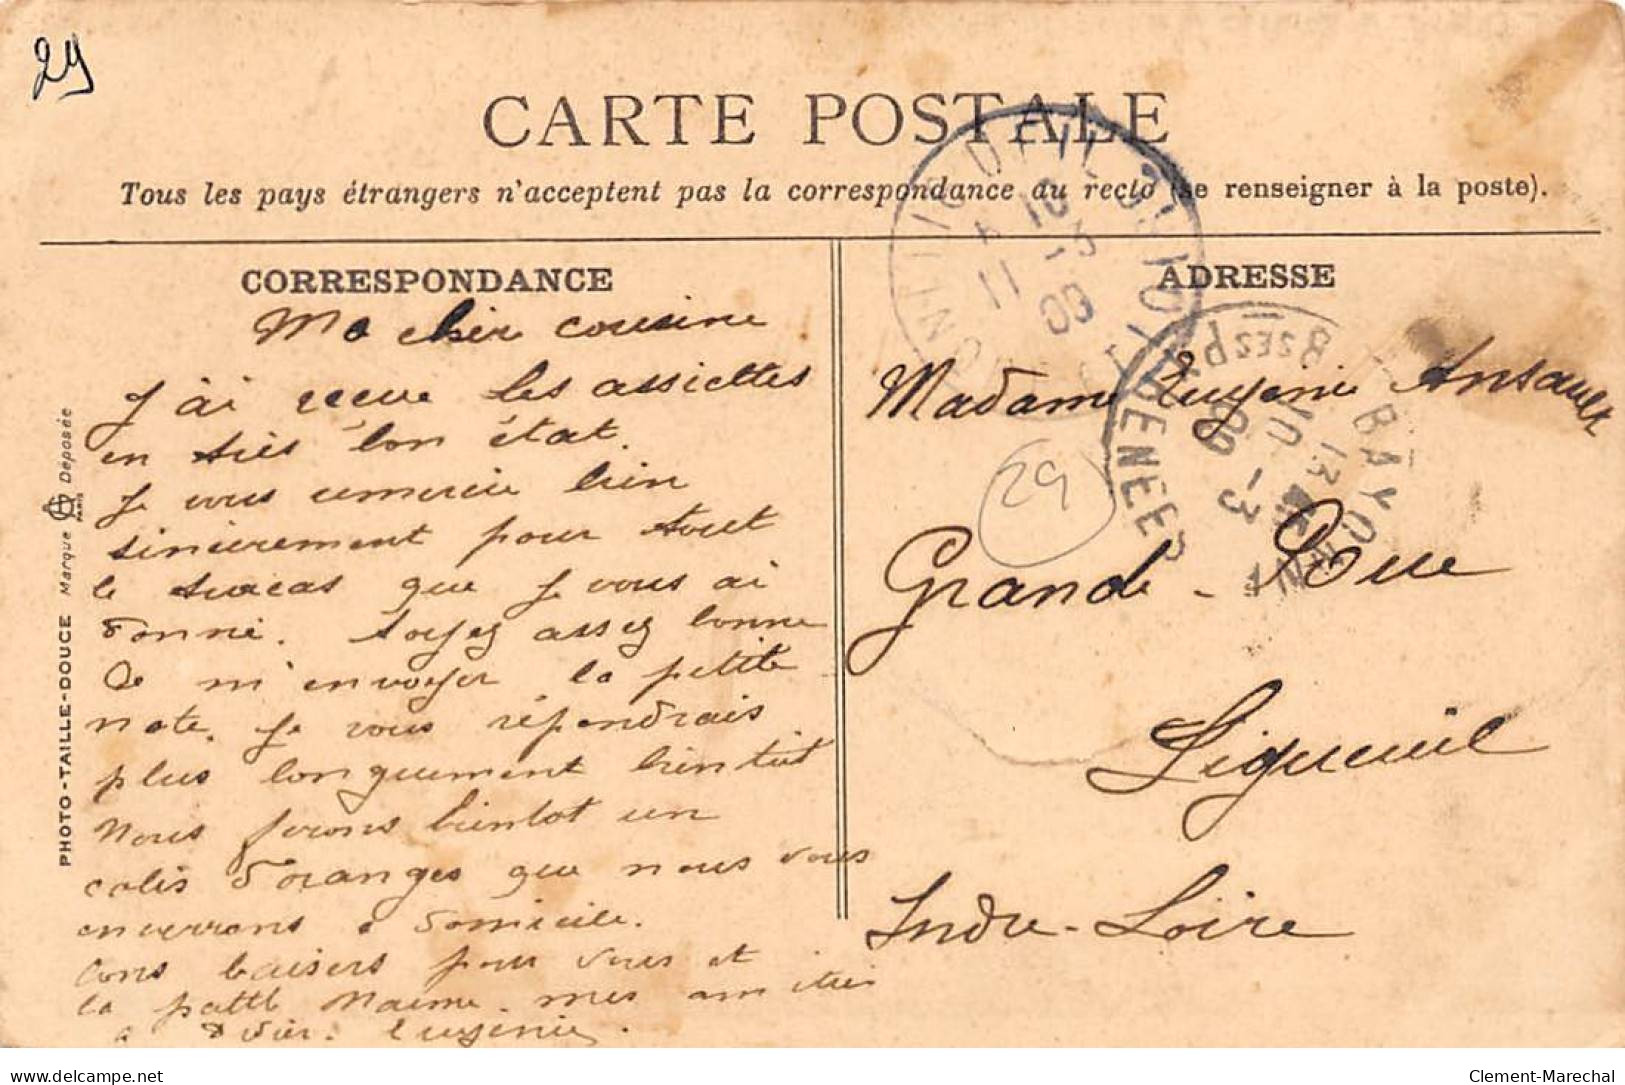 29
CARTE POSTALE
Tous les pays étrangers n'acceptent pas la correspondance au recto (se renseigner à la poste).
CORRESPONDANCE
Ma cher cousine
J'ai recue les assiettes
en très bon état.
Je vous remercie bien
sincerement pour tout
le tracas que je vous ai
donné. Soyez assez bonne
de m'envoyer la petite
note. Je vous répondrais
plus longuement bientôt
Nous ferons bientot un
colis d'oranges que nous vous
enverrons à domicile.
bons baisers pour vous et
la petite mes amitiés
à Eugénie.
PHOTO-TAILLE-DOUCE Marque Déposée
PARIS
ADRESSE
Madame Eugenie Ansault
Grande-Rue
Ligueuil
Indre-Loire
29
BAYONNE
BSES P
10-3
09
Clement-Marechal